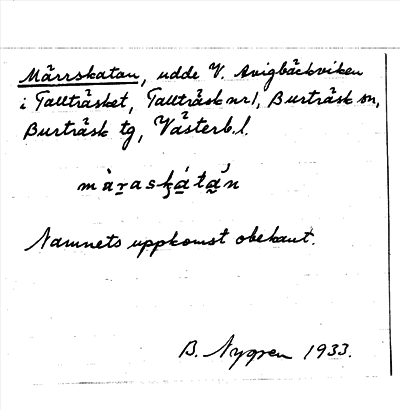 Märrskatan, udde V. Avigbäckviken
i Tallträsket, Tallträsk nr 1, Burträsk sn,
Burträsk tg, Västerb. l.
Namnets uppkomst obekant.
B. Nygren 1933.